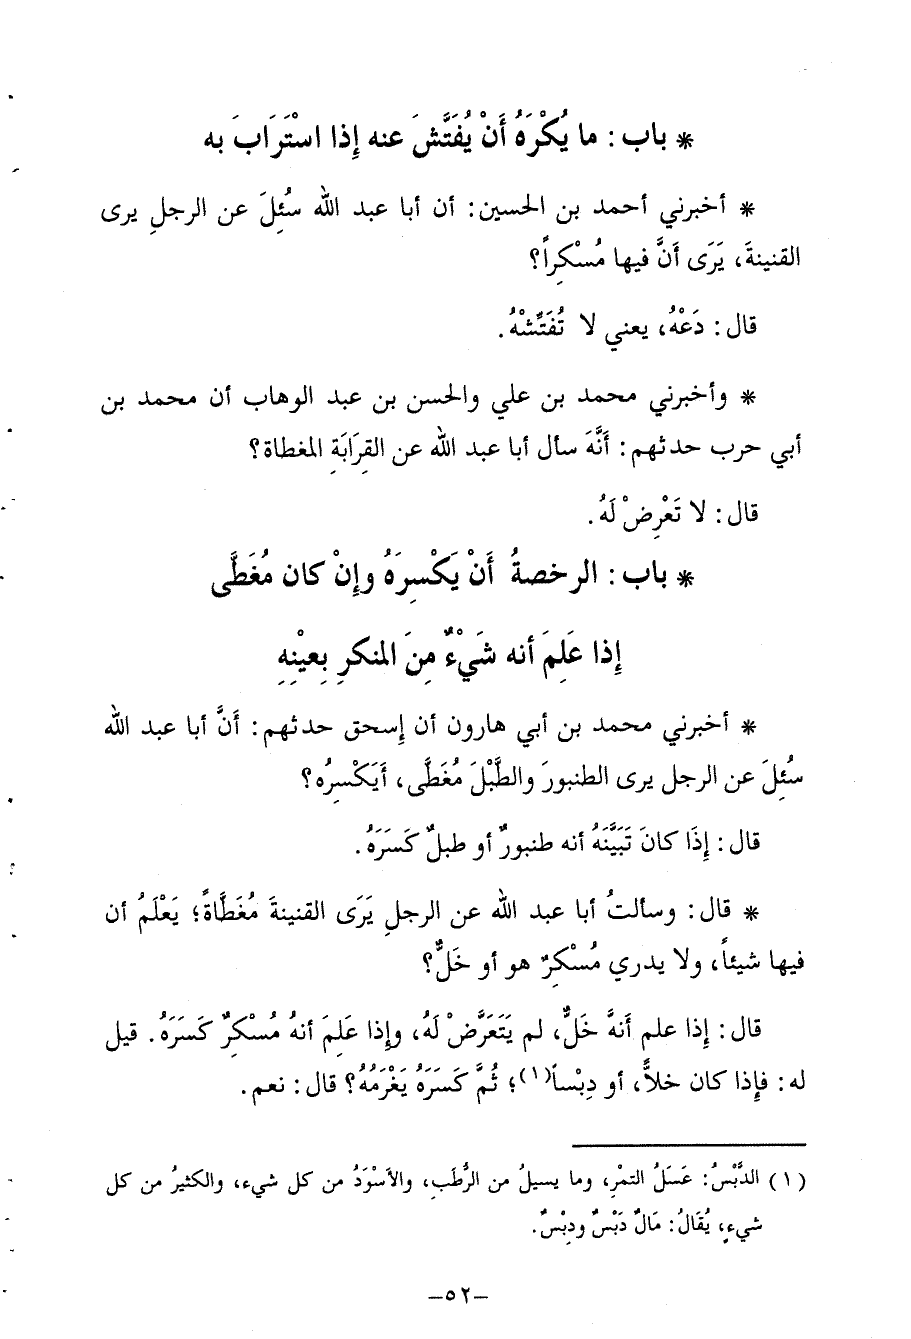 * باب: ما يُكْرَهُ أَنْ يُفَتَّشَ عنه إِذا اسْتَرَابَ به
* أخبرني أحمد بن الحسين: أن أبا عبد الله سُئِلَ عن الرجلِ يرى
القنينةَ، يَرَى أَنَّ فيها مُسْكِراً؟
قال: دَعْهُ، يعني لا تُفَتِّشْهُ.
* وأخبرني محمد بن علي والحسن بن عبد الوهاب أن محمد بن
أبي حرب حدثهم: أَنَّهَ سأل أبا عبد الله عن القِرَابَةِ المغطاة؟
قال: لا تَعْرِضْ لَهُ.
* باب: الرخصةُ أَنْ يَكْسِرَهُ وإِنْ كان مُغَطَّى
إِذا عَلِمَ أنه شَيْءٌ مِنَ المنكرِ بِعيْنِهِ
* أخبرني محمد بن أبي هارون أن إسحق حدثهم: أَنَّ أبا عبد الله
سُئِلَ عن الرجل يرى الطنبورَ والطَّبْلَ مُغَطَّى، أَيَكْسِرُه؟
قال: إِذَا كانَ تَبَيَّنَهُ أنه طنبورٌ أو طبلٌ كَسَرَهُ.
* قال: وسألتُ أبا عبد الله عن الرجلِ يَرَى القنينةَ مُغَطَّاةً؛ يَعْلَمُ أن
فيها شيئاً، ولا يدري مُسْكِرٌ هو أو خَلٌّ؟
قال: إِذا علم أَنهَّ خَلٌّ، لم يَتَعَرَّضْ لَهُ، وإِذا عَلِمَ أنهُ مُسْكِرٌ كَسَرَهُ. قيل
له: فإِذا كان خلاًّ، أو دِبْساً(١)؛ ثُمَّ كَسَرَهُ يَغْرَمُهُ؟ قال: نعم.
(١) الدِّبْسُ: عَسَلُ التمْرِ، وما يسيلُ من الرُّطَبِ، والأسْوَدُ من كل شيء، والكثيرُ من كل
شيءٍ، يُقَالُ: مَالٌ دَبْسٌ ودِبْسٌ.
–٥٢–